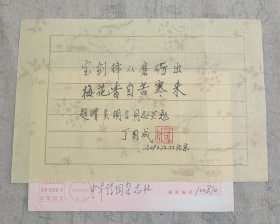 宝剑锋从磨砺出
梅花香自苦寒来
题赠吴国吉同志共勉
丁国成
2010.12.22 北京
中华诗词杂志社
邮政编码：100810